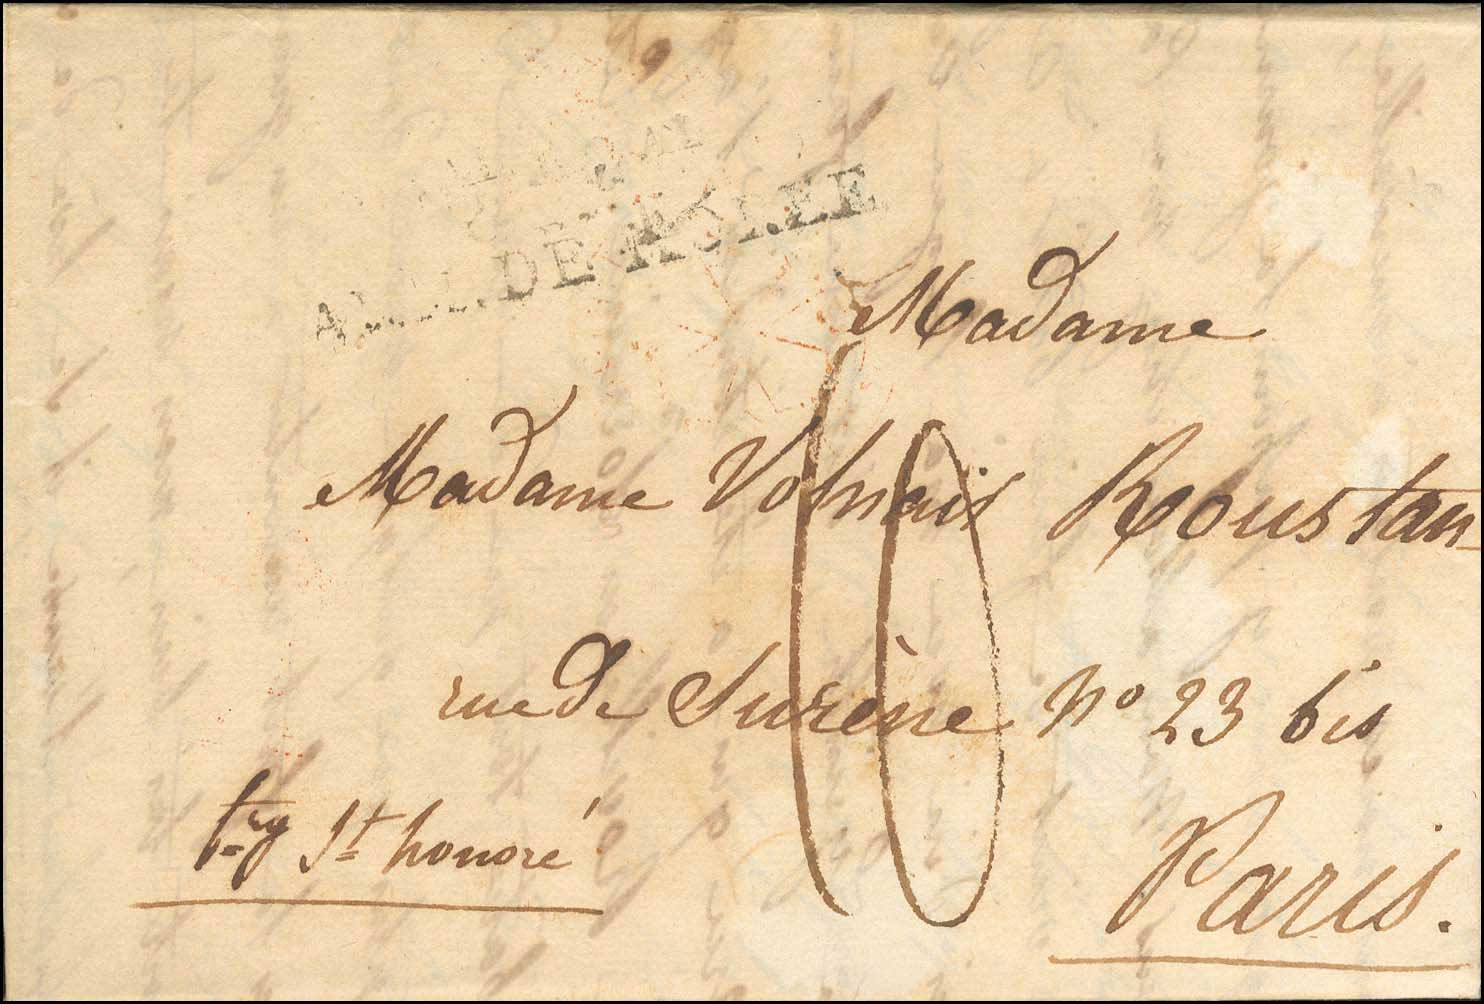 DE MORÉE
Madame
Madame Volnais Roustan
rue de Surène No 23 bis
fbrg St honoré
10
Paris.